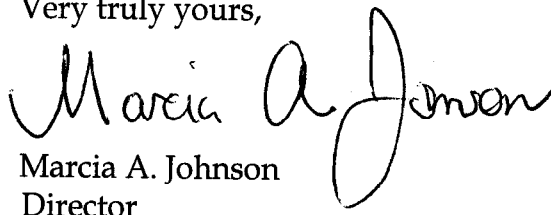 Very truly yours,
Marcia A. Johnson
Marcia A. Johnson
Director